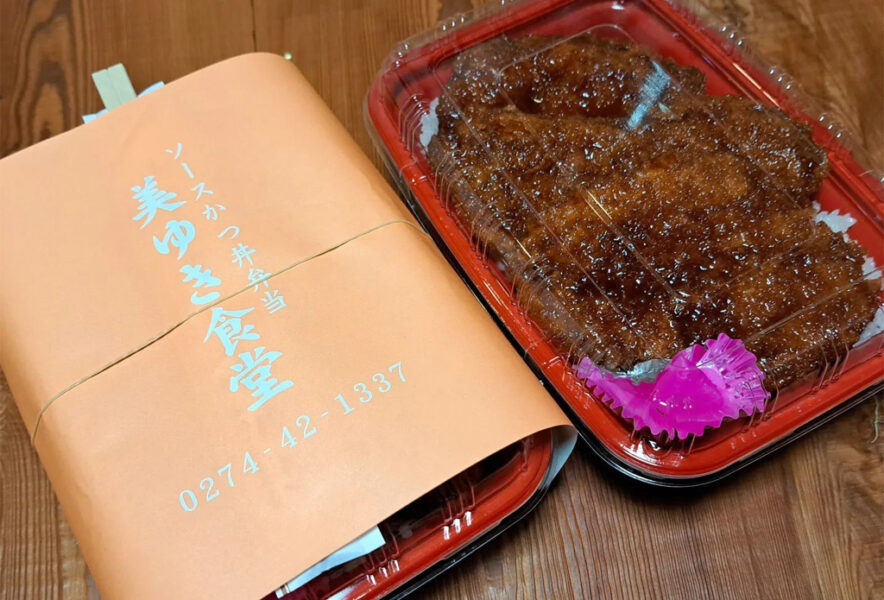 ソースかつ丼弁当
美ゆき食堂
0274-42-1337